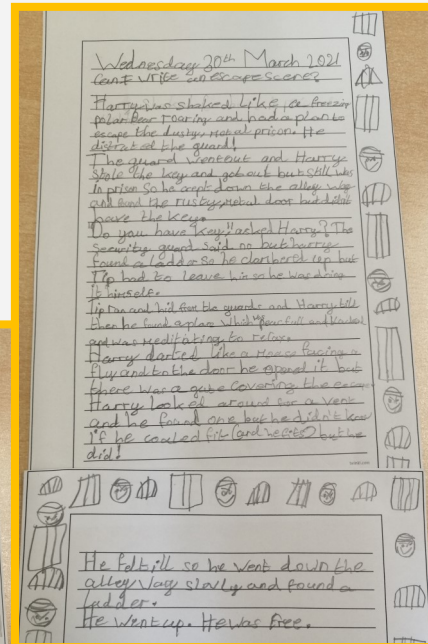 Wednesday 30th March 2021
Can I write an escape scene?
Harry was shaked like, a freezing
polar Bear roaring and had a plan to
escape the dusty, metal prison. He
distrated the guard!
The guard went out and Harry
Stole the key and got out but still was
in prison So he crept down the alley way
and found the rusty, metal door but didn't
have the key.
Do you have key!! asked Harry? The
security guard said no but harry
found a ladder So he clamberd up but
Tip had to leave him so he was doing
it himself.
Tip ran and hid from the guards and Harry
then he found a plan which
and was Meditating to relax.
Harry darted like a Mouse facing a
fly and to the door he it but
there was a gate covering the escape
Harry looked around for a vent
and he found one, but he didn't know
if he coaled fit (and he fits?) but he
did!
He felt ill so he went down the
alley Vay slowly and found a
ladder.
He went up. He was free.